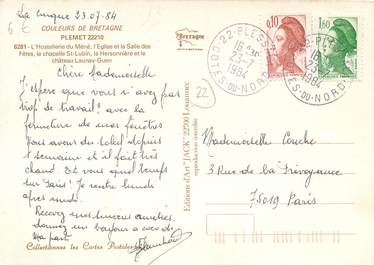 6 €
23.07.84
COULEURS DE BRETAGNE
PLEMET 22210
6281 - L'Hostellerie du Méné, l'Eglise et la Salle des
Fêtes, la chapelle St-Lubin, la Hersonnière et le
château Launay-Guen
Bretagne
Chère Mademoiselle
J'espère que vous n'avez pas
trop de travail ? avec la
fermeture de mes fenêtres
Nous avons du soleil depuis
1 semaine et il fait très
chaud. Et vous quel temps
sur Paris ? Je rentre lundi
après midi.
Recevez mes sincères amitiés.
donnez un bonjour à coco de
ma part.
Collectionnez les Cartes Postales
Editions d'Art "JACK" 22700 Louannec
reproduction interdite
22
0,10
1,60
22-PLESTIN
23-7
1984
COTES-DU-NORD
Mademoiselle Couche
3 Rue de la Prévoyance
75019 Paris